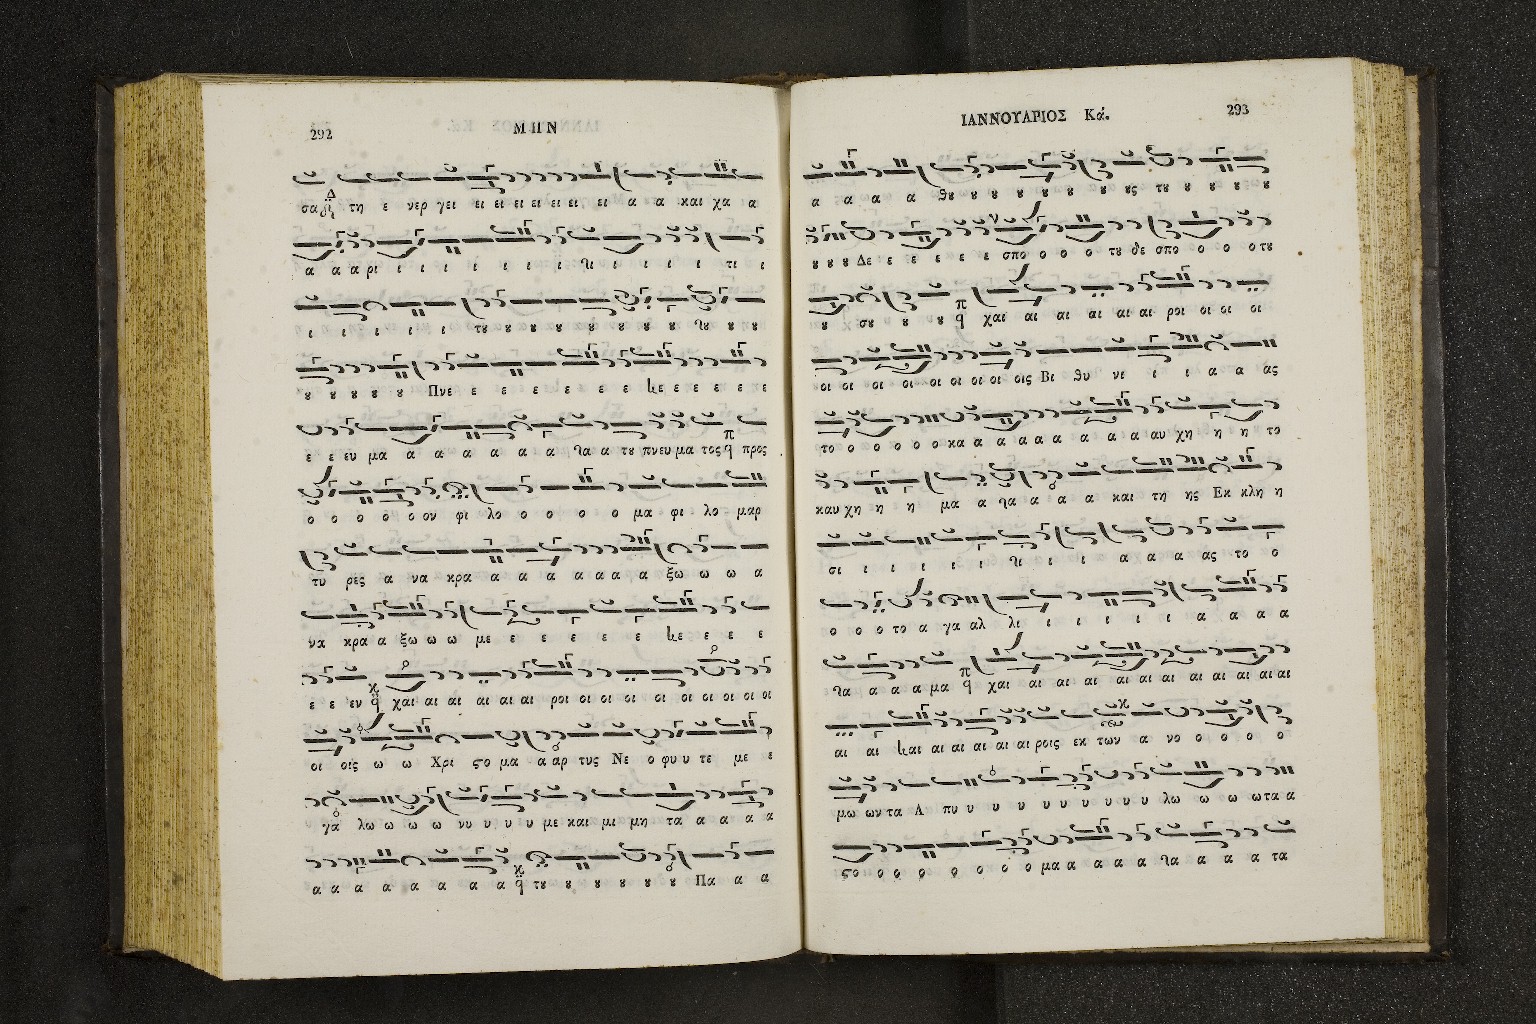 292
ΜΗΝ
σα τη ε νερ γει ει ει ει ει ει ει ει α α και χα α
α α α ρι ι ι ι ι ι ι ι ι ι ι τι ι
ι ι ι ι ι τȣ ȣ ȣ ȣ ȣ ȣ ȣ ȣ ȣ ȣ
ȣ ȣ ȣ ȣ ȣ Πνε ε ε ε ε ε ε ε ε ε ε ε
ε ε ευ μα α α α α α α α τȣ πνευ μα τος προς
ο ο ο ο ο ον φι λο ο ο ο ο μα φι λο μαρ
τυ ρες α να κρα α α α α α α α ξω ω ω α
να κρα α ξω ω ω με ε ε ε ε ε ε ε ε
ε ε εν χαι αι αι αι αι αι ροι οι οι οι οι οι οι οι οι οι
οι οις ω ω Χρι ϛο μα α αρ τυς Νε ο φυ υ τε με ε
γα λω ω ω ω νυ υ υ υ με και μι μη τα α α α α
α α α α α α α α α τȣ ȣ ȣ ȣ ȣ ȣ Πα α α
ΙΑΝΝΟΥΑΡΙΟΣ Κά.
293
α α α α θȣ ȣ ȣ ȣ ȣ ȣ ȣ ȣ ȣς τȣ ȣ ȣ ȣ ȣ
ȣ ȣ ȣ Δε ε ε ε ε ε σπο ο ο ο τȣ δε σπο ο ο ο τȣ
ȣ σȣ ȣ ȣ χαι αι αι αι αι αι ροι οι οι οι
οι οι οι οι οι οι οι οι οις Βι θυ νι ι ι α α ας
το ο ο ο ο ο κα α α α α α α α α αυ χη η η το
καυ χη η η μα α α α α α και τη ης Εκ κλη η
σι ι ι ι ι ι ι α α α ας το ο
ο ο ο το α γα αλ λι ι ι ι ι ι α α α α
α α α α μα χαι αι αι αι αι αι αι αι αι αι αι
αι αι αι αι αι αι αι αι ροις εκ των α νο ο ο ο ο
μω ων τα Α πυ υ υ υ υ υ υ υ υ υ λω ω ω ω τα α
ϛο ο ο ο ο ο ο ο μα α α α α α α α α τα